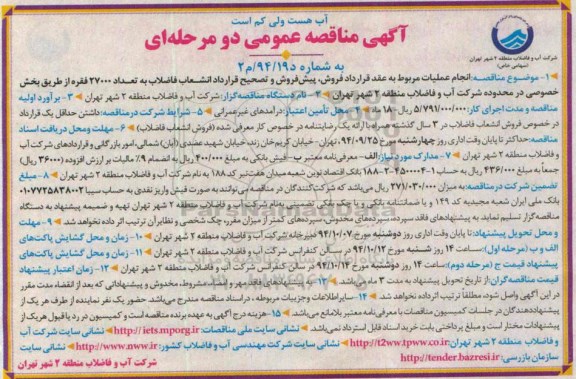 آب هست ولی کم است
آگهی مناقصه عمومی دو مرحله‌ای
به شماره د۹۴/۱۹/م۲
شرکت آب و فاضلاب منطقه ۲ شهر تهران
(سهامی خاص)
۱- موضوع مناقصه: انجام عملیات مربوط به عقد قرارداد فروش، پیش‌فروش و تصحیح قرارداد انشعاب فاضلاب به تعداد ۲۷۰۰۰ فقره از طریق بخش
خصوصی در محدوده شرکت آب و فاضلاب منطقه ۲ شهر تهران ۲- نام دستگاه مناقصه‌گزار: شرکت آب و فاضلاب منطقه ۲ شهر تهران ۳- برآورد اولیه
مناقصه و مدت اجرای کار: ۵/۷۹۱/۰۰۰/۰۰۰ ریال- ۱۸ ماه ۴- محل تأمین اعتبار: درآمدهای غیرعمرانی ۵- شرایط شرکت در مناقصه: داشتن حداقل یک قرارداد
در خصوص فروش انشعاب فاضلاب در ۳ سال گذشته همراه با ارائه یک رضایتنامه در خصوص کار معرفی شده (فروش انشعاب فاضلاب) ۶- مهلت و محل دریافت اسناد
مناقصه: حداکثر تا پایان وقت اداری روز چهارشنبه مورخ ۹۴/۰۹/۲۵ تهران، خیابان کریم خان زند، خیابان شهید عضدی (آبان) شمالی، امور بازرگانی و قراردادهای شرکت آب
و فاضلاب منطقه ۲ شهر تهران ۷- مدارک مورد نیاز: الف- معرفی‌نامه معتبر ب- فیش بانکی به مبلغ ۴۰۰/۰۰۰ ریال به انضمام ۹٪ مالیات بر ارزش افزوده (۳۶۰۰۰ ریال)
جمعاً به مبلغ ۴۳۶/۰۰۰ ریال به حساب ۱-۴۵۰۰۰۴-۲-۱۸۸ بانک اقتصاد نوین شعبه میدان هفت‌تیر کد ۱۸۸ به نام شرکت آب و فاضلاب منطقه ۲ شهر تهران ۸- مبلغ
تضمین شرکت در مناقصه: به میزان ۲۷۱/۰۳۰/۰۰۰ ریال می‌باشد که شرکت‌کنندگان در مناقصه می‌توانند به صورت فیش واریز نقدی به حساب سیبا ۰۱۰۷۷۲۵۸۳۸۰۰۲
بانک ملی ایران شعبه مجیدیه کد ۱۴۹ و یا ضمانتنامه بانکی و یا چک بانکی تضمینی به نام شرکت آب و فاضلاب منطقه ۲ شهر تهران تهیه و ضمیمه پیشنهاد به دستگاه
مناقصه‌گزار تسلیم نماید. به پیشنهادهای فاقد سپرده، سپرده‌های مخدوش، سپرده‌های کمتر از میزان مقرر، چک شخصی و نظایر آن ترتیب اثر داده نخواهد شد. ۹- مهلت
و محل تحویل پیشنهاد: تا پایان وقت اداری روز دوشنبه مورخ ۹۴/۱۰/۰۷ دبیرخانه شرکت آب و فاضلاب منطقه ۲ شهر تهران ۱۰- زمان و محل گشایش پاکت‌های
الف و ب (مرحله اول): ساعت ۱۴ روز شنبه مورخ ۹۴/۱۰/۱۲ در سالن کنفرانس شرکت آب و فاضلاب منطقه ۲ شهر تهران ۱۱- زمان و محل گشایش پاکت‌های
پیشنهاد قیمت ج (مرحله دوم): ساعت ۱۴ روز دوشنبه مورخ ۹۴/۱۰/۱۴ در سالن کنفرانس شرکت آب و فاضلاب منطقه ۲ شهر تهران ۱۲- زمان اعتبار پیشنهاد
قیمت مناقصه‌گران: از تاریخ تحویل پیشنهاد به مدت ۳ ماه می‌باشد. ۱۳- به پیشنهادهای فاقد مهر و امضاء، مشروط، مخدوش و پیشنهاداتی که بعد از انقضاء مدت مقرر
در این آگهی واصل شود، مطلقاً ترتیب اثر داده نخواهد شد. ۱۴- سایر اطلاعات و جزییات مربوطه، در اسناد مناقصه مندرج می‌باشد. حضور یک نفر نماینده از طرف هر یک از
پیشنهاددهندگان در جلسات کمیسیون مناقصات با معرفی‌نامه معتبر بلامانع می‌باشد. ۱۵- هزینه درج آگهی به عهده برنده مناقصه است و کمیسیون در رد یا قبول هر یک از
پیشنهادات مختار است و مبلغ پرداختی بابت خرید اسناد قابل استرداد نمی‌باشد. نشانی سایت ملی مناقصات: http://iets.mporg.ir نشانی سایت شرکت آب
و فاضلاب منطقه ۲ شهر تهران: http://t2ww.tpww.co.ir نشانی سایت شرکت مهندسی آب و فاضلاب کشور: http://www.nww.ir نشانی سایت
سازمان بازرسی: http://tender.bazresi.ir
شرکت آب و فاضلاب منطقه ۲ شهر تهران